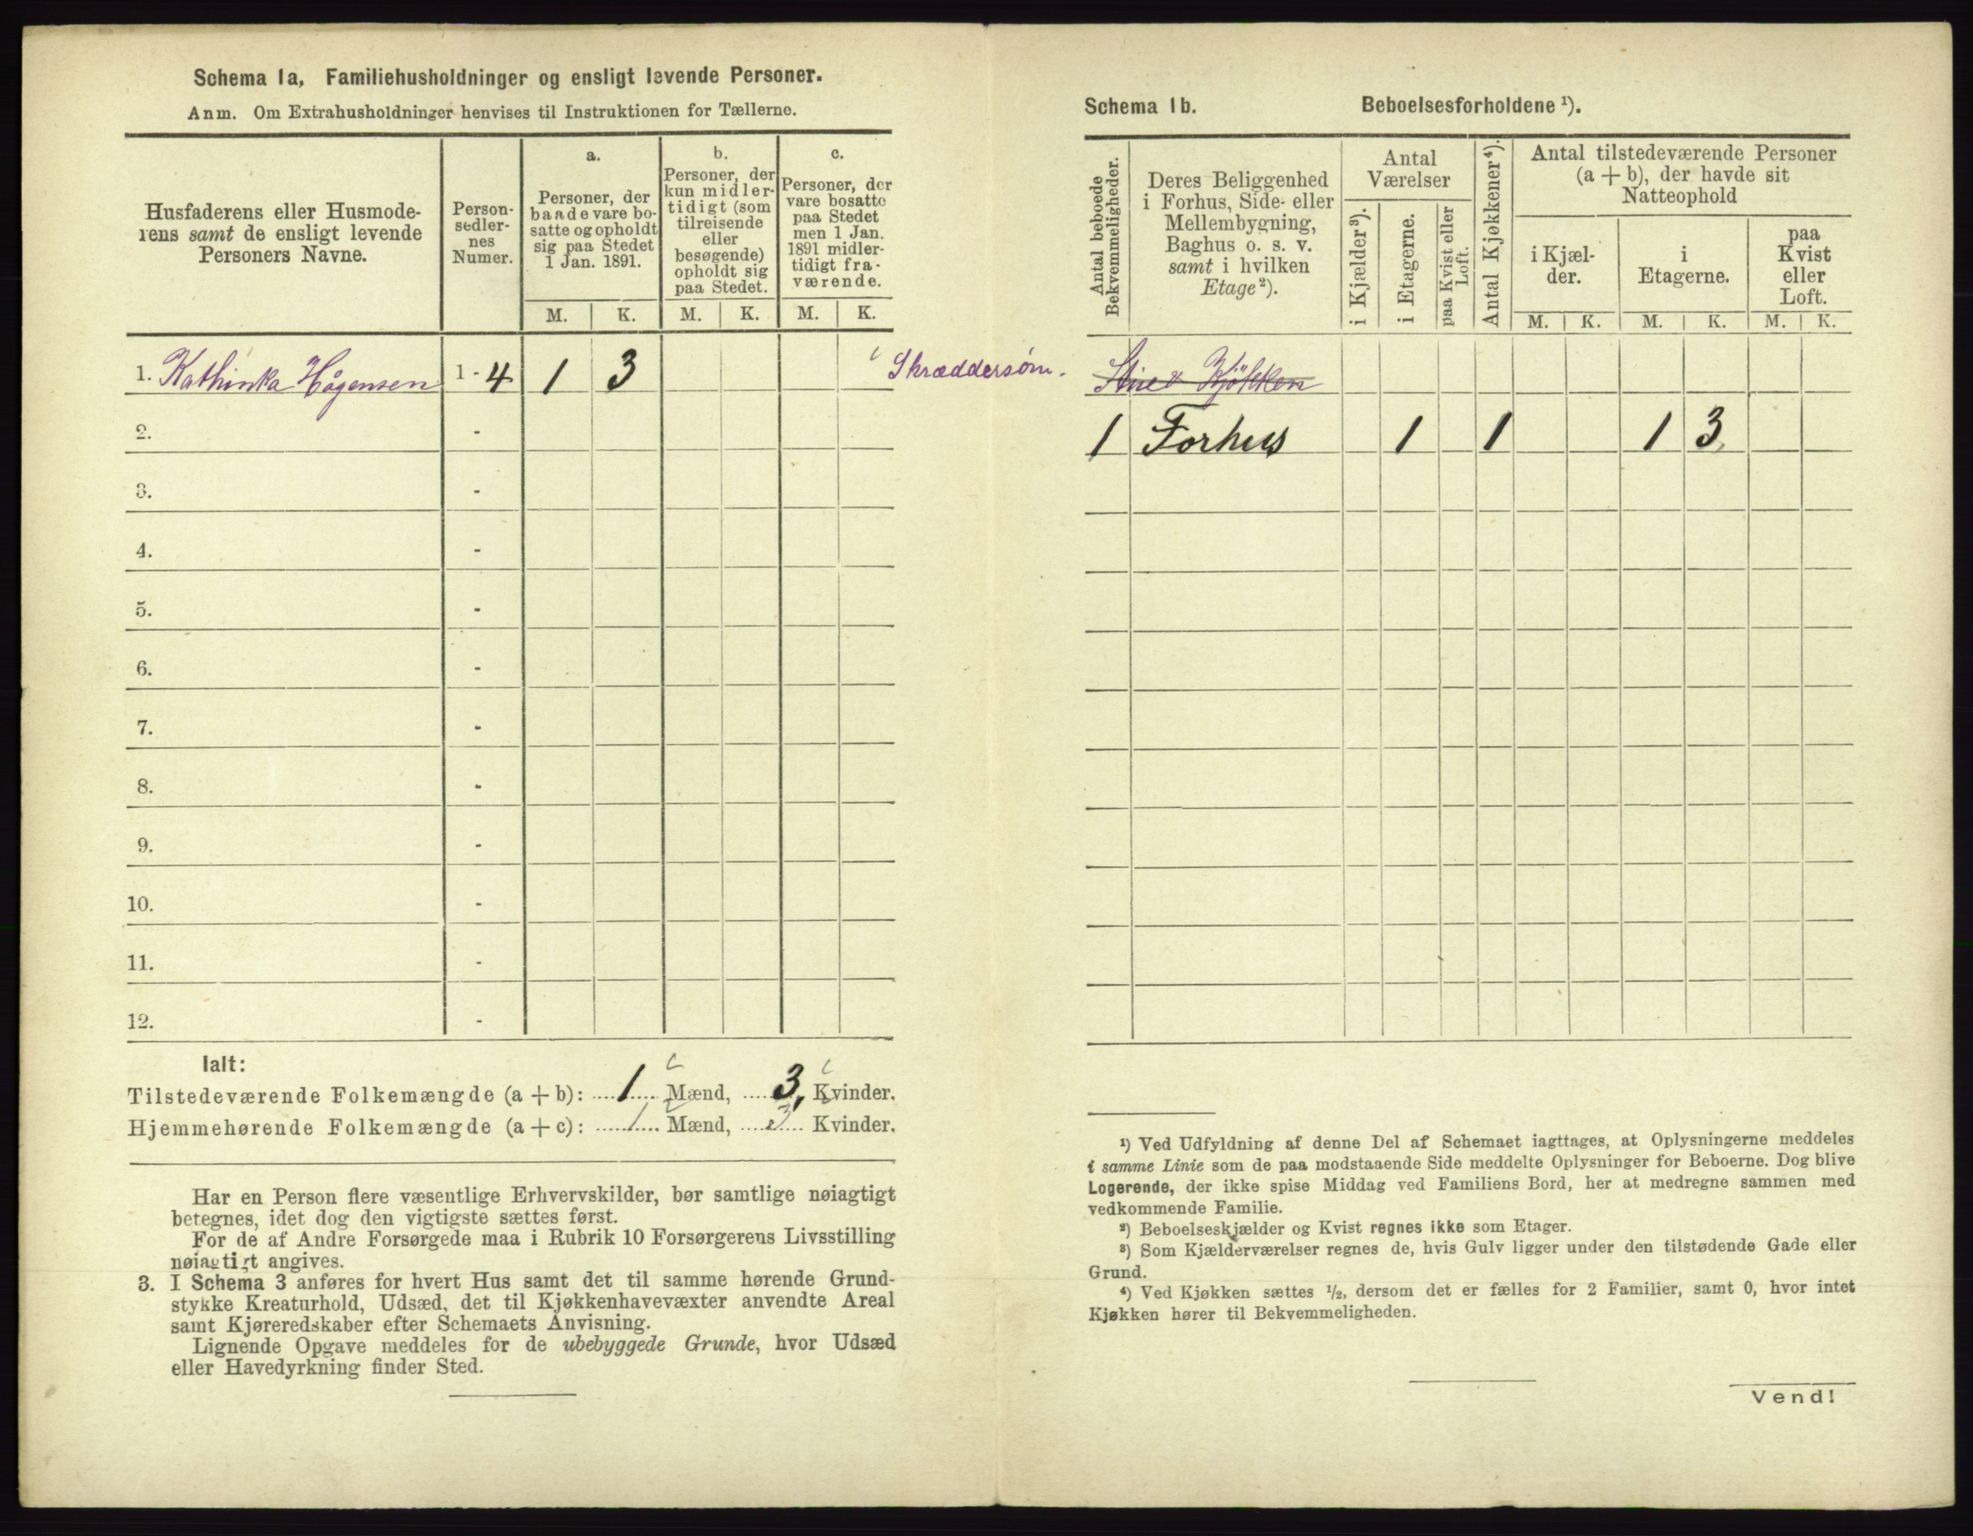 Schema 1a, Familiehusholdninger og ensligt levende Personer.
Anm. Om Extrahusholdninger henvises til Instruktionen for Tællerne.
Husfaderens eller Husmode-
rens samt de ensligt levende
Personers Navne.
Person-
sedler-
nes
Numer.
a.
Personer, der
baade vare bo-
satte og opholdt
sig paa Stedet
1 Jan. 1891.
b.
Personer, der
kun midler-
tidigt (som
tilreisende
eller
besøgende)
opholdt sig
paa Stedet.
c.
Personer, der
vare bosatte
paa Stedet
men 1 Jan.
1891 midler-
tidigt fra-
værende.
M. K. M. K. M. K.
1. Kathinka Hågensen 1-4 1 3 Skræddersøm.
2. -
3. -
4. -
5. -
6. -
7. -
8. -
9. -
10. -
11. -
12. -
Ialt:
Tilstedeværende Folkemængde (a + b): 1 Mænd, 3, Kvinder.
Hjemmehørende Folkemængde (a + c): 1 Mænd, 3 Kvinder.
Har en Person flere væsentlige Erhvervskilder, bør samtlige nøiagtigt
betegnes, idet dog den vigtigste sættes først.
For de af Andre Forsørgede maa i Rubrik 10 Forsørgerens Livsstilling
nøiagtigt angives.
3. I Schema 3 anføres for hvert Hus samt det til samme hørende Grund-
stykke Kreaturhold, Udsæd, det til Kjøkkenhavevæxter anvendte Areal
samt Kjøreredskaber efter Schemaets Anvisning.
Lignende Opgave meddeles for de ubebyggede Grunde, hvor Udsæd
eller Havedyrkning finder Sted.
Schema 1b. Beboelsesforholdene ¹).
Antal beboede
Bekvemmeligheder.
Deres Beliggenhed
i Forhus, Side- eller
Mellembygning,
Baghus o. s. v.
samt i hvilken
Etage ²).
Antal
Værelser
i Kjælder ³).
i Etagerne.
paa Kvist eller
Loft.
Antal Kjøkkener ⁴).
Antal tilstedeværende Personer
(a + b), der havde sit
Natteophold
i Kjæl-
der.
i
Etagerne.
paa
Kvist
eller
Loft.
M. K. M. K. M. K.
Kjøkken
1 Forhus 1 1 1 3
¹) Ved Udfyldning af denne Del af Schemaet iagttages, at Oplysningerne meddeles
i samme Linie som de paa modstaaende Side meddelte Oplysninger for Beboerne. Dog blive
Logerende, der ikke spise Middag ved Familiens Bord, her at medregne sammen med
vedkommende Familie.
²) Beboelseskjælder og Kvist regnes ikke som Etager.
³) Som Kjælderværelser regnes de, hvis Gulv ligger under den tilstødende Gade eller
Grund.
⁴) Ved Kjøkken sættes ½, dersom det er fælles for 2 Familier, samt 0, hvor intet
Kjøkken hører til Bekvemmeligheden.
Vend!